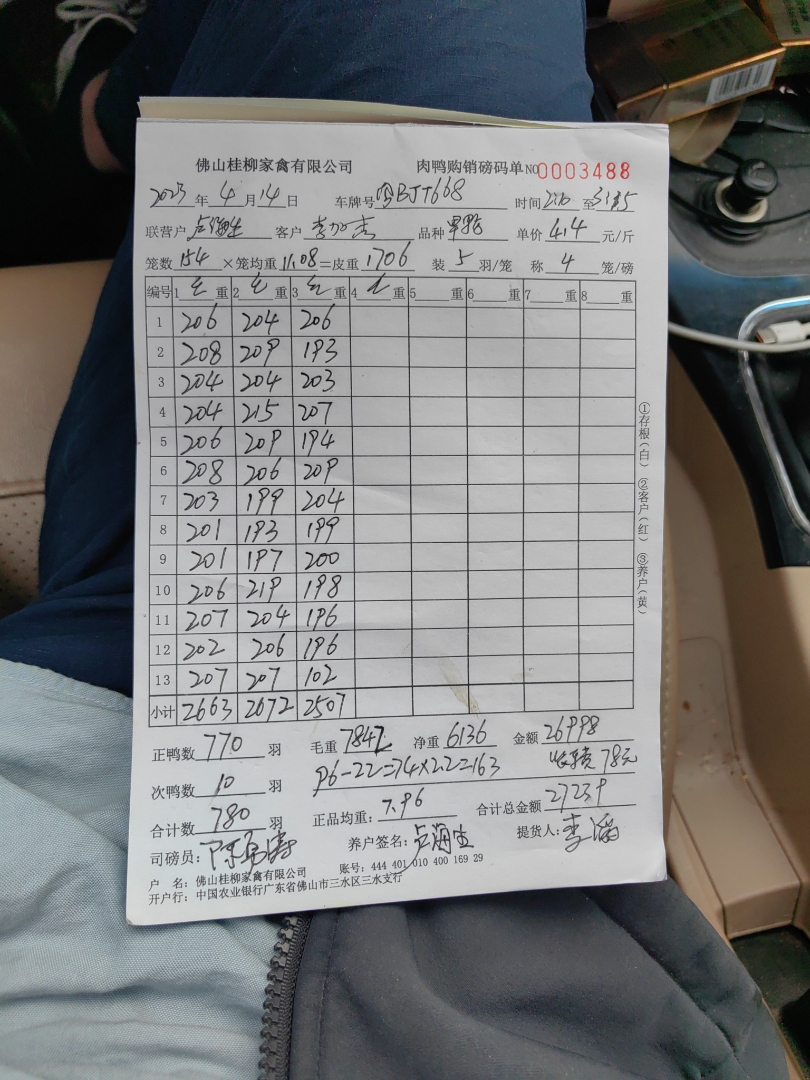 佛山桂柳家禽有限公司 肉鸭购销磅码单 NO 0003488
2023 年 4 月 14 日 车牌号 BJT668 时间 至
联营户 客户 品种 单价 4.14 元/斤
笼数 154 ×笼均重 11.08 =皮重 1706 装 5 羽/笼 称 4 笼/磅
编号 1 重 2 重 3 重 4 重 5 重 6 重 7 重 8 重
1 206 204 206
2 208 209 193
3 204 204 203
4 204 215 207
5 206 209 194
6 208 206 209
7 203 199 204
8 201 193 199
9 201 197 200
10 206 219 198
11 207 204 196
12 202 206 196
13 207 207 102
小计 2663 2672 2507
正鸭数 770 羽 毛重 7842 净重 6136 金额 26998
次鸭数 10 羽 96-22=74×2.2=163 78元
合计数 780 羽 正品均重: 7.96 合计总金额 27239
司磅员: 养户签名: 提货人:
户 名: 佛山桂柳家禽有限公司 账号: 444 401 010 400 169 29
开户行: 中国农业银行广东省佛山市三水区三水支行
①存根(白) ②客户(红) ③养户(黄)